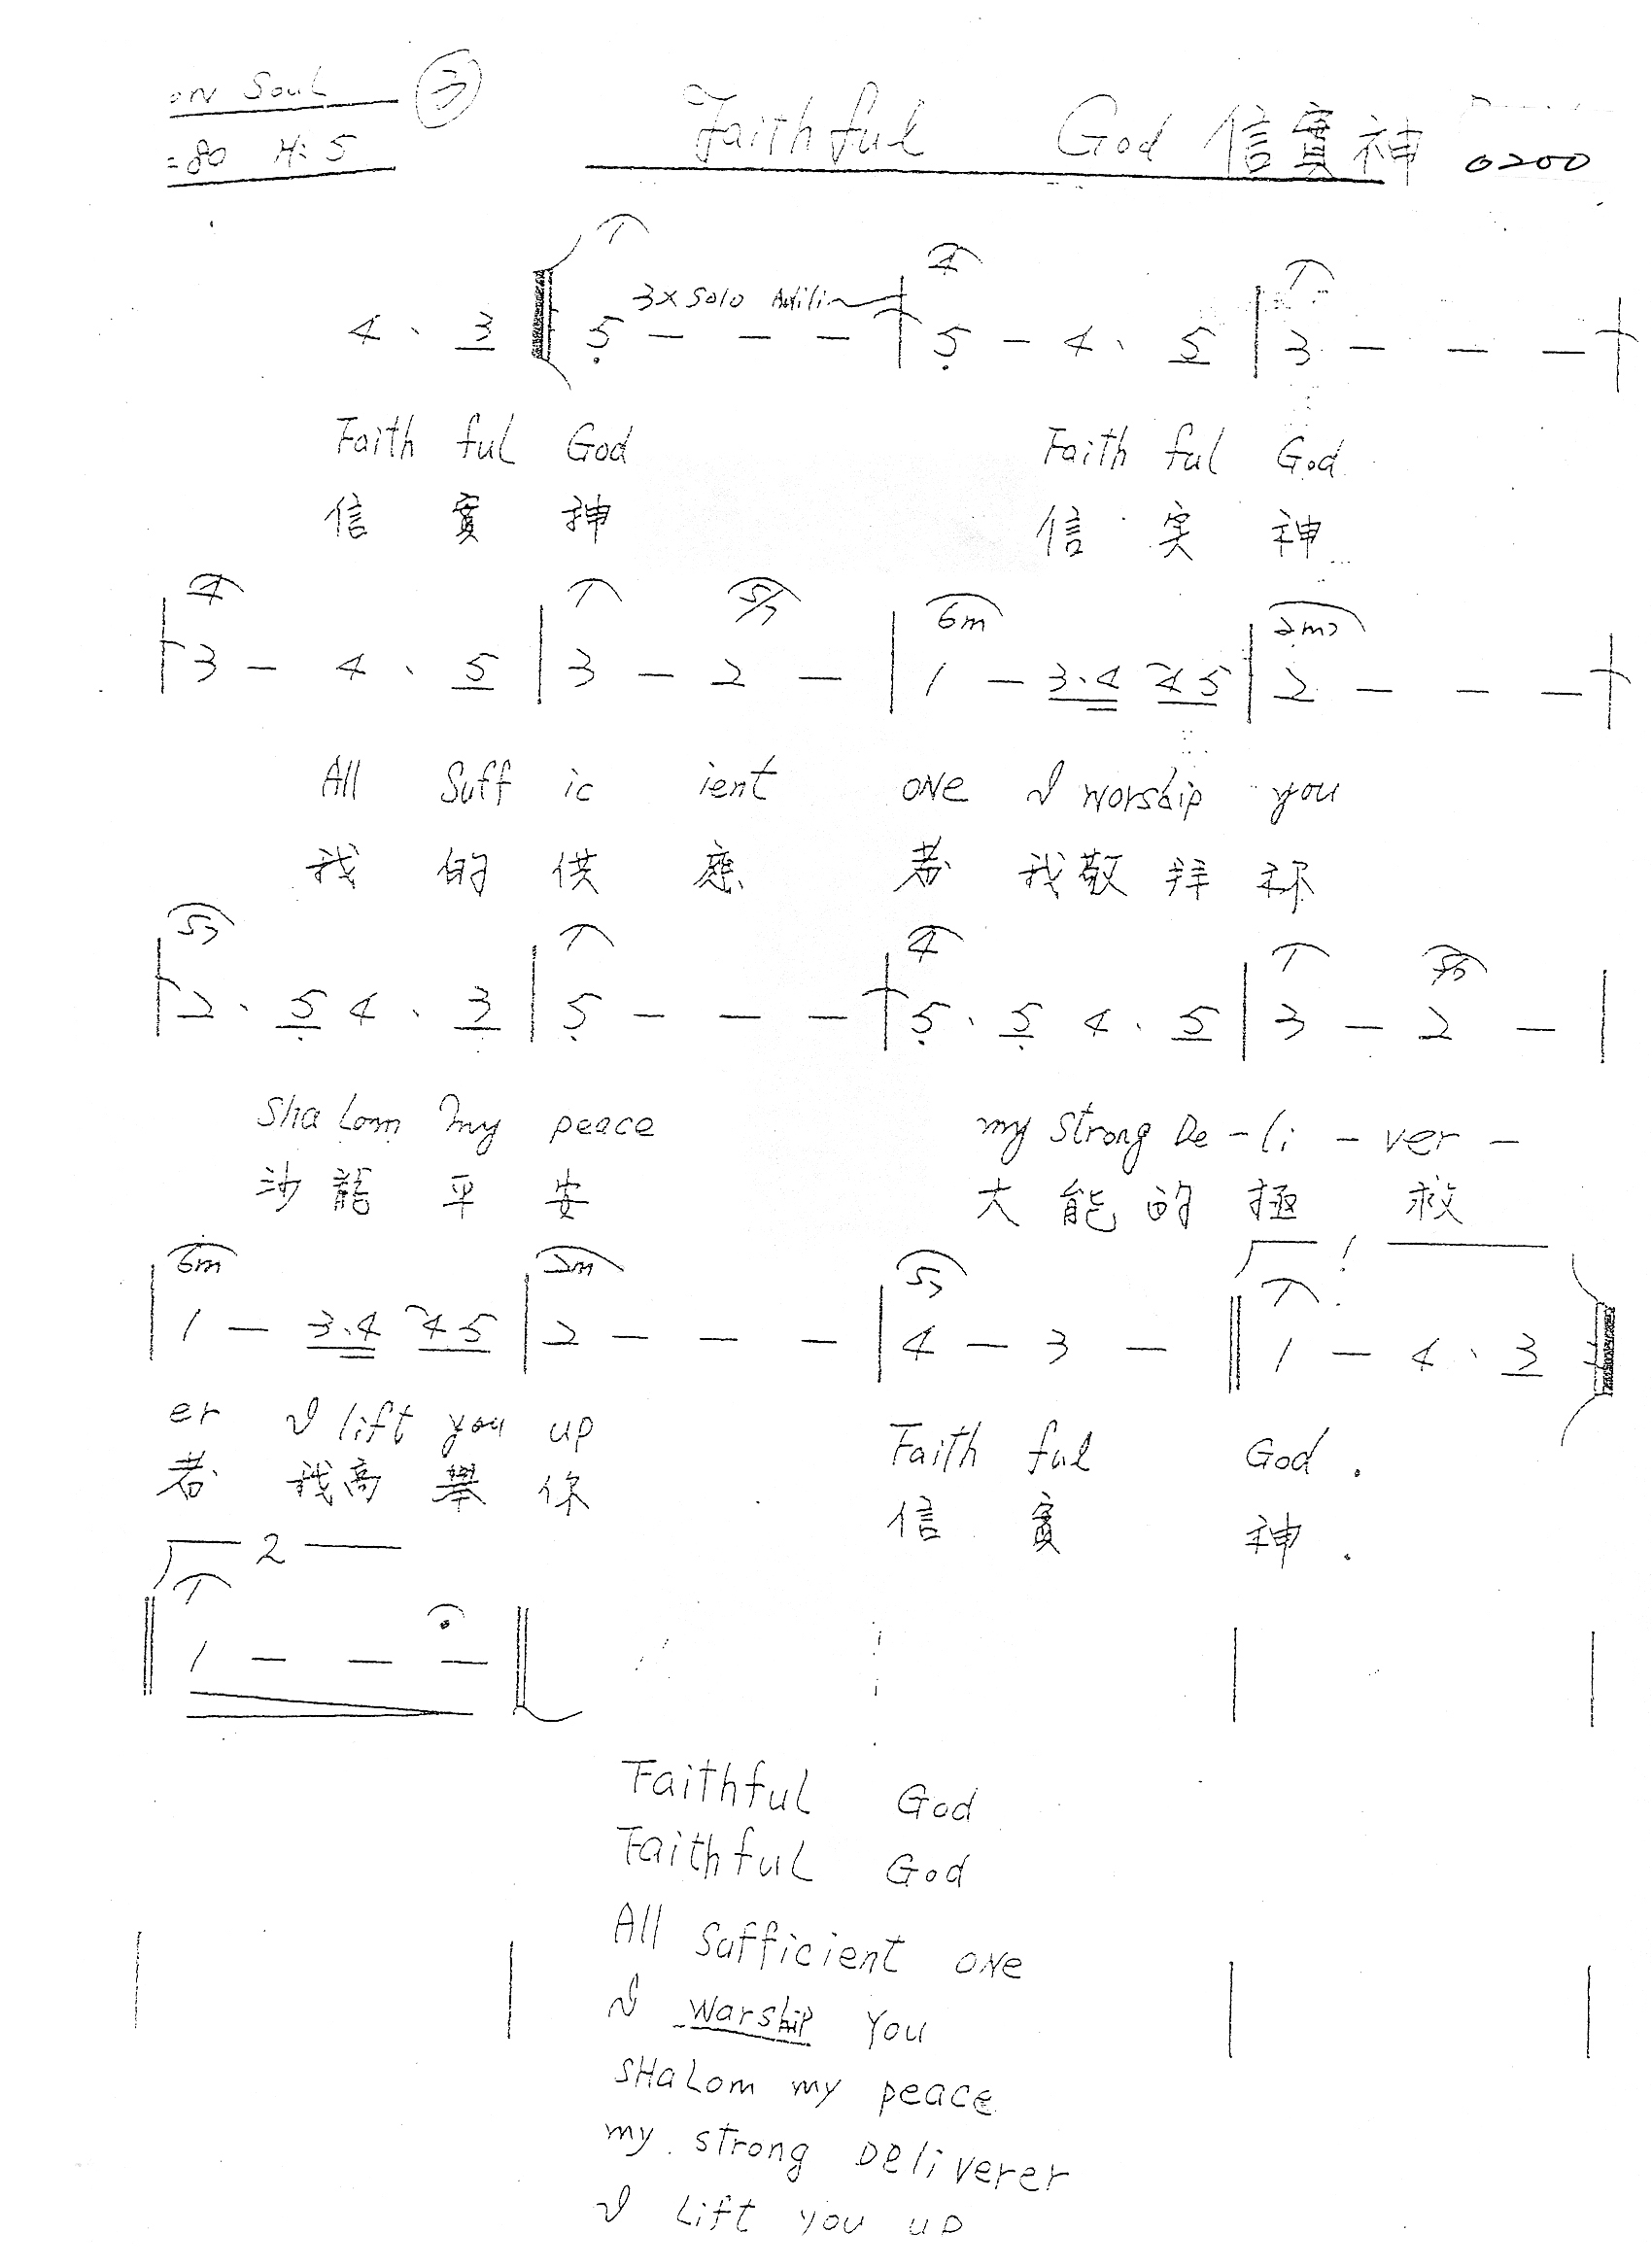 on Soul ③ Faithful God 信實神 0200
=80 H: 5
1 3x Solo 4 1
4 · 3 5 - - - | 5 - 4 · 5 | 3 - - -
Faith ful God Faith ful God
信 實 神 信 实 神
4 1 5/7 6m 2m7
| 3 - 4 · 5 | 3 - 2 - | 1 - 3·4 4 5 | 2 - - - |
All Suff ic ient one I worship you
我 的 供 應 者 我 敬 拜 祢
57 1 4 1
| 2 · 5 4 · 3 | 5 - - - | 5 · 5 4 · 5 | 3 - 2 - |
Sha lom my peace my strong De - li - ver -
沙 龍 平 安 大 能 的 拯 救
6m 2m 57 1 1
| 1 - 3·4 4 5 | 2 - - - | 4 - 3 - || 1 - 4 · 3
er I lift you up Faith ful God .
者 我 高 舉 你 信 實 神 .
2
1
|| 1 - - - ||
Faithful God
Faithful God
All Sufficient one
I Warship You
SHaLom my peace
my strong Deliverer
I Lift you up